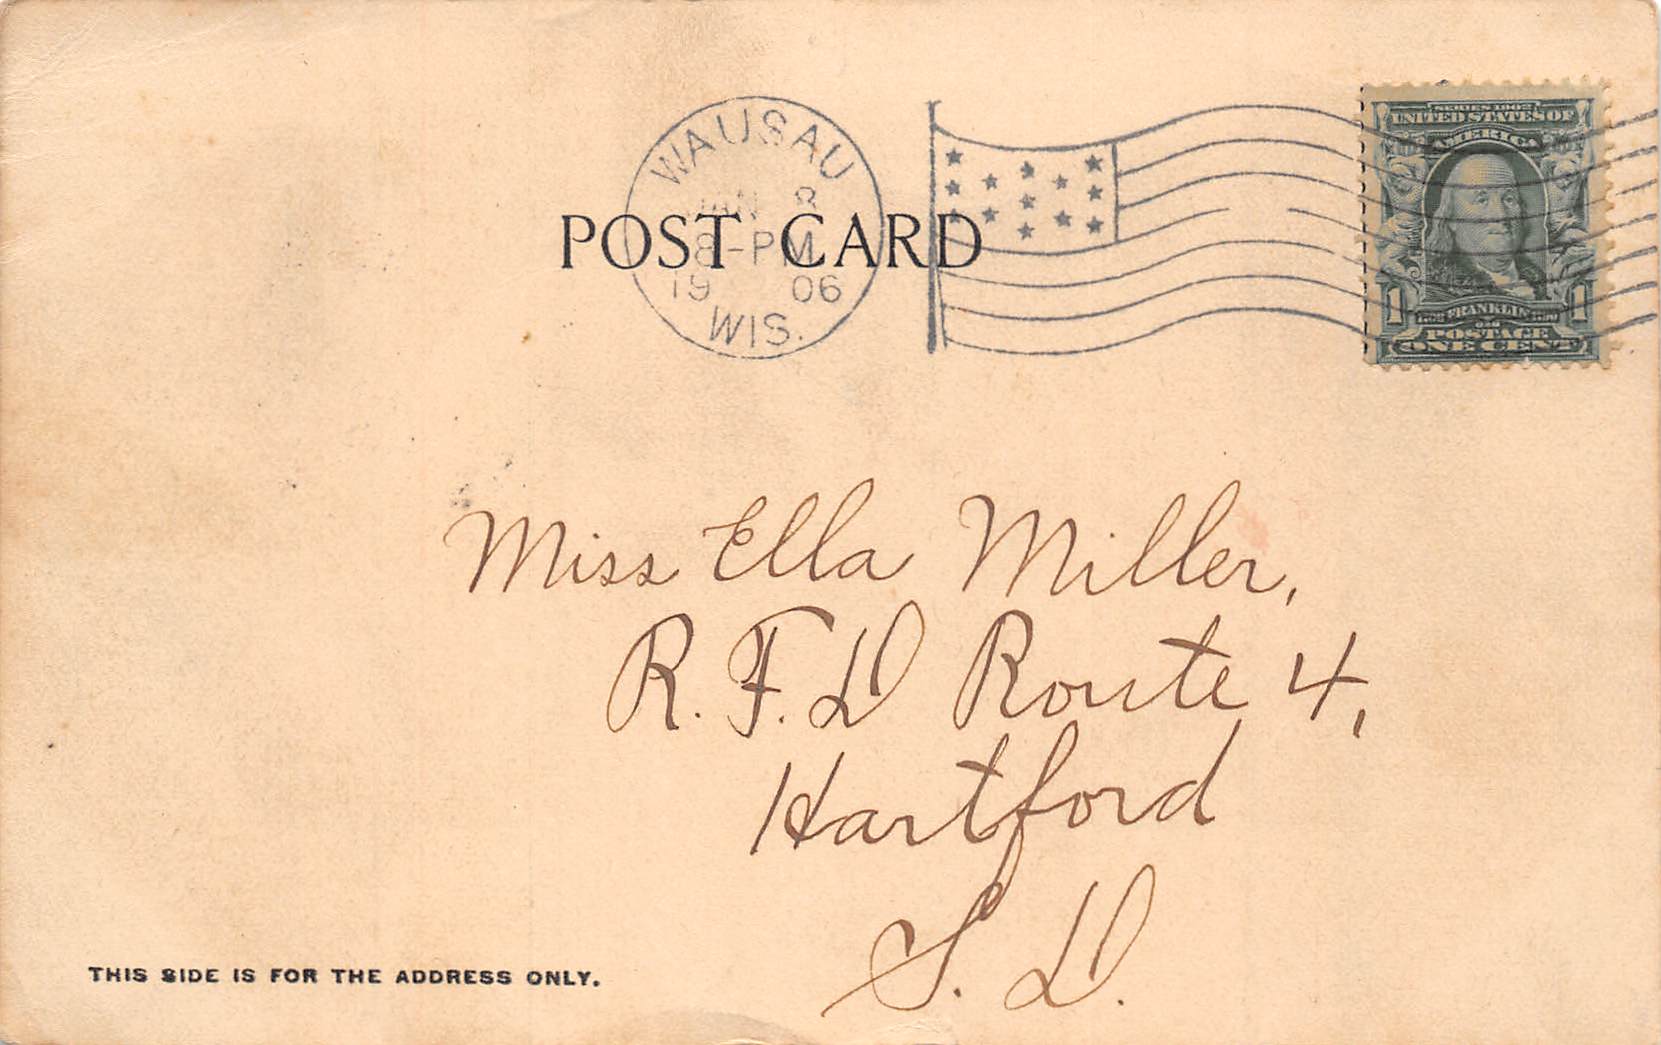 WAUSAU
JAN 8
8-PM
19 06
WIS.
POST CARD
SERIES 1902
UNITED STATES OF
AMERICA
FRANKLIN
POSTAGE
1 1
ONE CENT
Miss Ella Miller,
R. F. D Route 4,
Hartford
S. D.
THIS SIDE IS FOR THE ADDRESS ONLY.